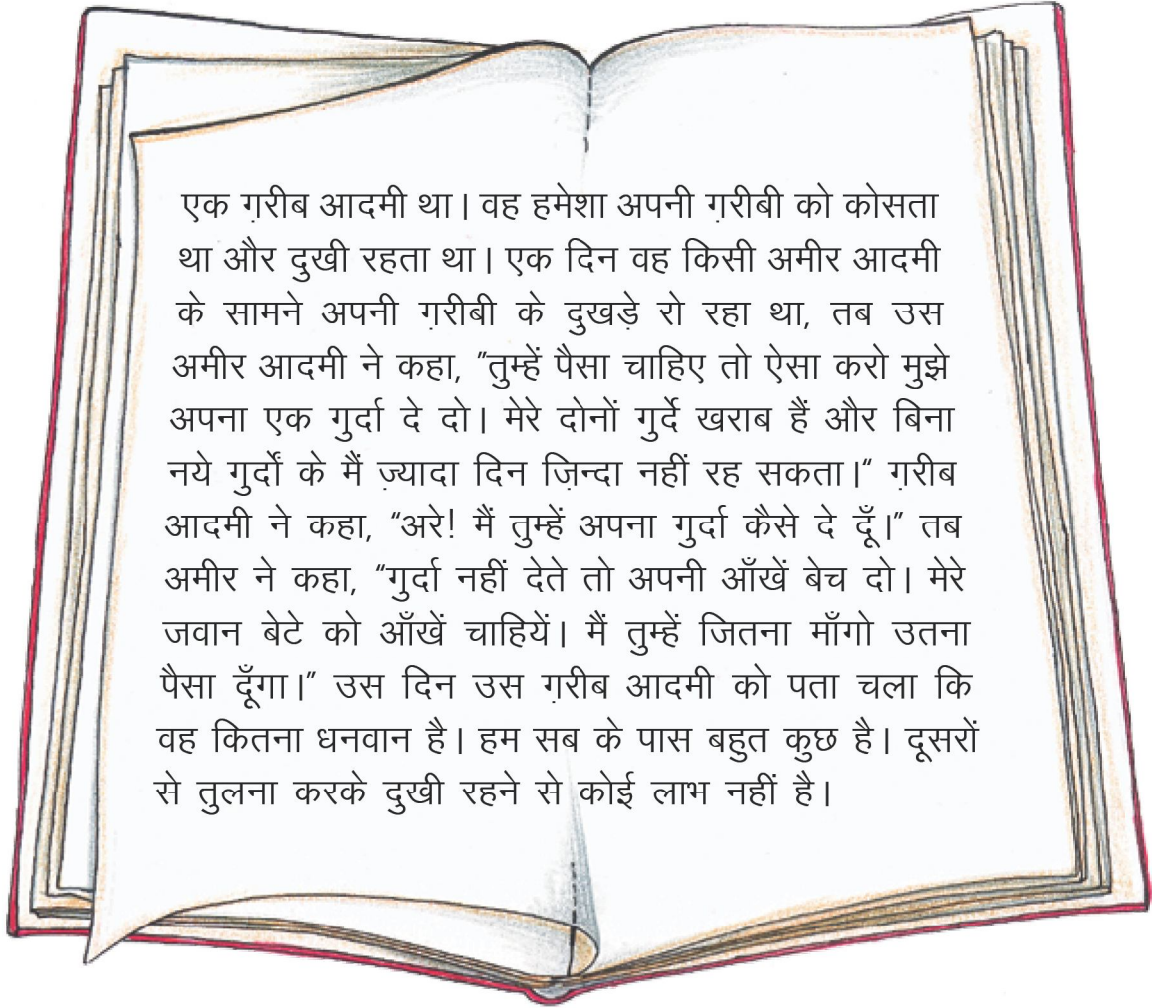 एक ग़रीब आदमी था। वह हमेशा अपनी ग़रीबी को कोसता
था और दुखी रहता था। एक दिन वह किसी अमीर आदमी
के सामने अपनी ग़रीबी के दुखड़े रो रहा था, तब उस
अमीर आदमी ने कहा, "तुम्हें पैसा चाहिए तो ऐसा करो मुझे
अपना एक गुर्दा दे दो। मेरे दोनों गुर्दे खराब हैं और बिना
नये गुर्दों के मैं ज़्यादा दिन ज़िन्दा नहीं रह सकता।" ग़रीब
आदमी ने कहा, "अरे! मैं तुम्हें अपना गुर्दा कैसे दे दूँ।" तब
अमीर ने कहा, "गुर्दा नहीं देते तो अपनी आँखें बेच दो। मेरे
जवान बेटे को आँखें चाहियें। मैं तुम्हें जितना माँगो उतना
पैसा दूँगा।" उस दिन उस ग़रीब आदमी को पता चला कि
वह कितना धनवान है। हम सब के पास बहुत कुछ है। दूसरों
से तुलना करके दुखी रहने से कोई लाभ नहीं है।